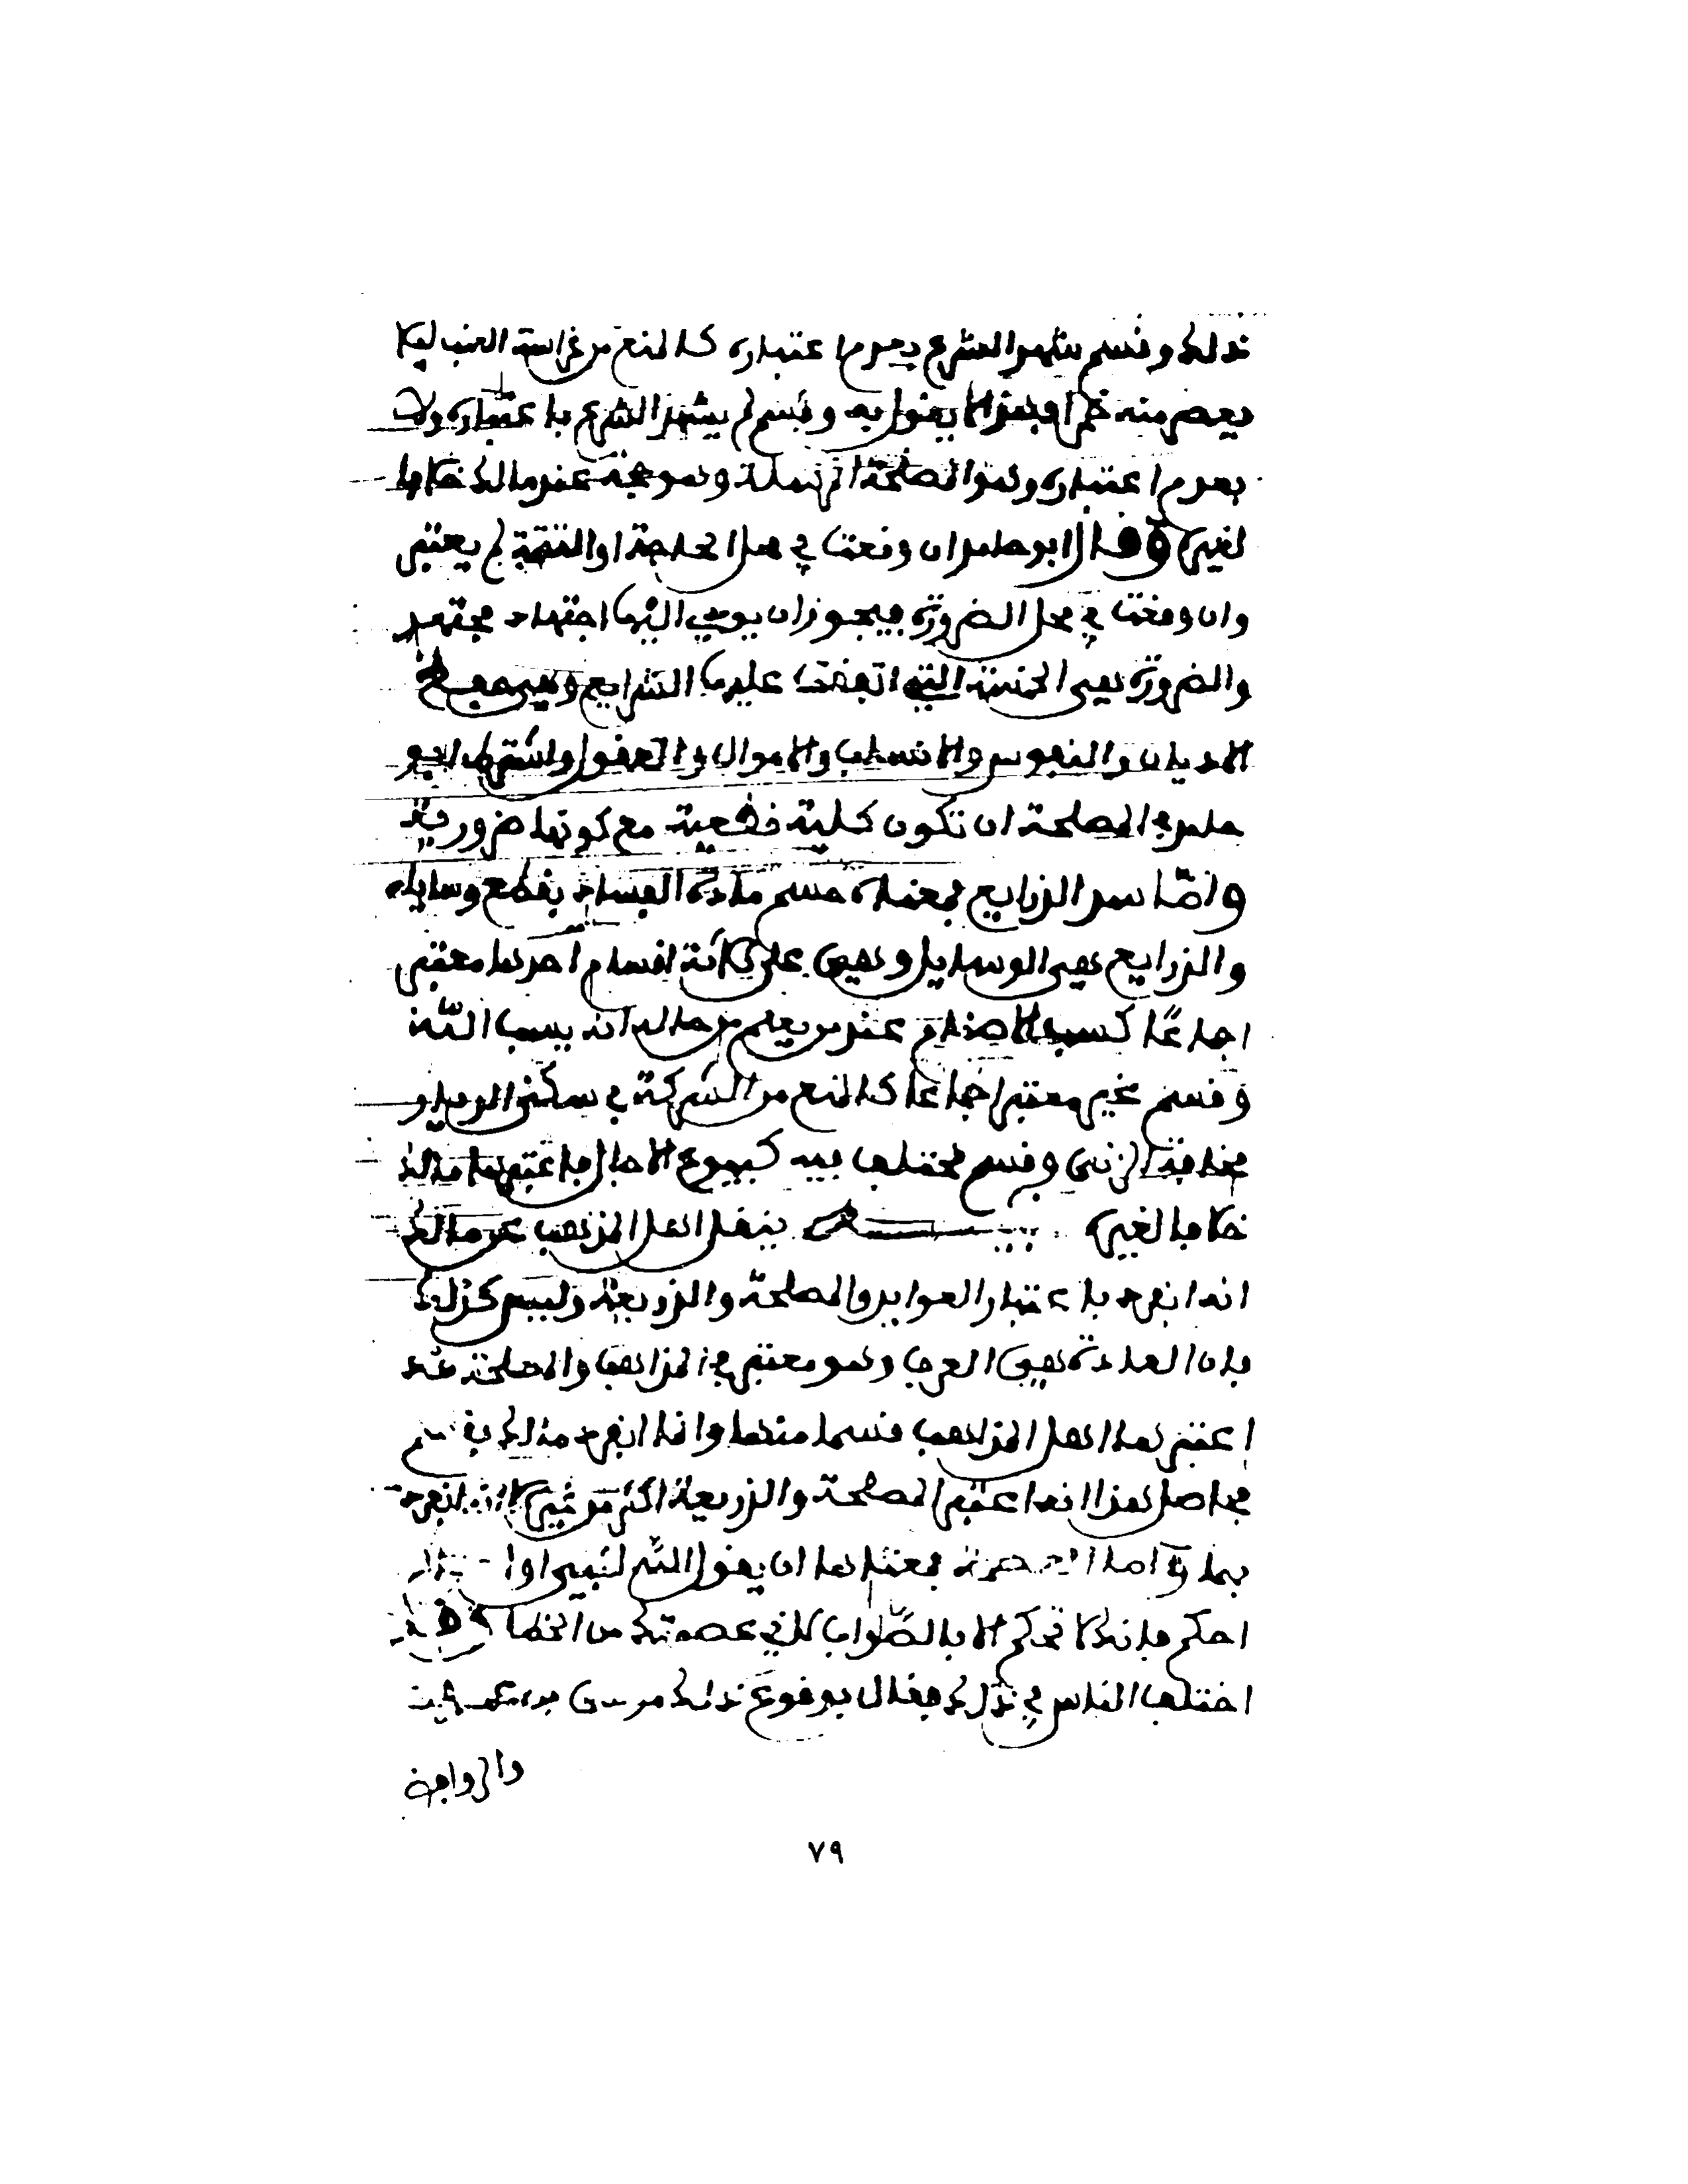 ذلك وقسم شهد الشرع بعدم اعتباره كالمنع من غراسة العنب ليلا
يعصر منه خمر او بهذا لا يقول به وقسم لم يشهد الشرع باعتباره ولا
بعدم اعتباره وهو المصلحة المرسلة وهو حجة عند مالك خلافا
لغيره وقال ابو حامد ان وقعت في محل الحاجة او التتمة لم يعتبر
وان وقعت في محل الضرورة فيجوز ان يودي اليها اجتهاد مجتهد
والضرورة هي الخمسة التي اتفقت عليها الشرايع وهي حفظ
الاديان والنفوس والانساب والاموال والعقول واشترط ابو
حامد في المصلحة ان تكون كلية قطعية مع كونها ضرورية
وامّا سد الذرايع فمعناه حسم مادة الفساد بقطع وسايله
والذرايع هي الوسايل وهي على ثلاثة اقسام احدها معتبر
اجماعًا كسب الاصنام عند من يعلم من حاله انه يسب الله
وقسم غير معتبر اجماعا كالمنع من الشركة في سكنى الديار
مخافة الزنى وقسم مختلف فيه كبيوع الاجال فاعتبرها مالك
خلافا لغيره تنبيه ينقل اهل المذهب عن مالك
انه انفرد باعتبار العوايد والمصلحة والذريعة وليس كذلك
فان العادة هي العرف وهو معتبر في المذاهب والمصلحة قد
اعتبر لها اهل المذاهب قسما منها وانما انفرد مالك بقسم
فحاصل هذا انه اعتبر المصلحة والذريعة اكثر من غيره لا انه انفرد
بها واما العصمة فمعناها ان يقول الله لنبي او
احكم فانك لا تحكم الا بالصواب لاني عصمتك من الخطا وقد
اختلف الناس في ذلك فقال بوقوع ذلك موسى بن عمران
والرواجة
٧٩